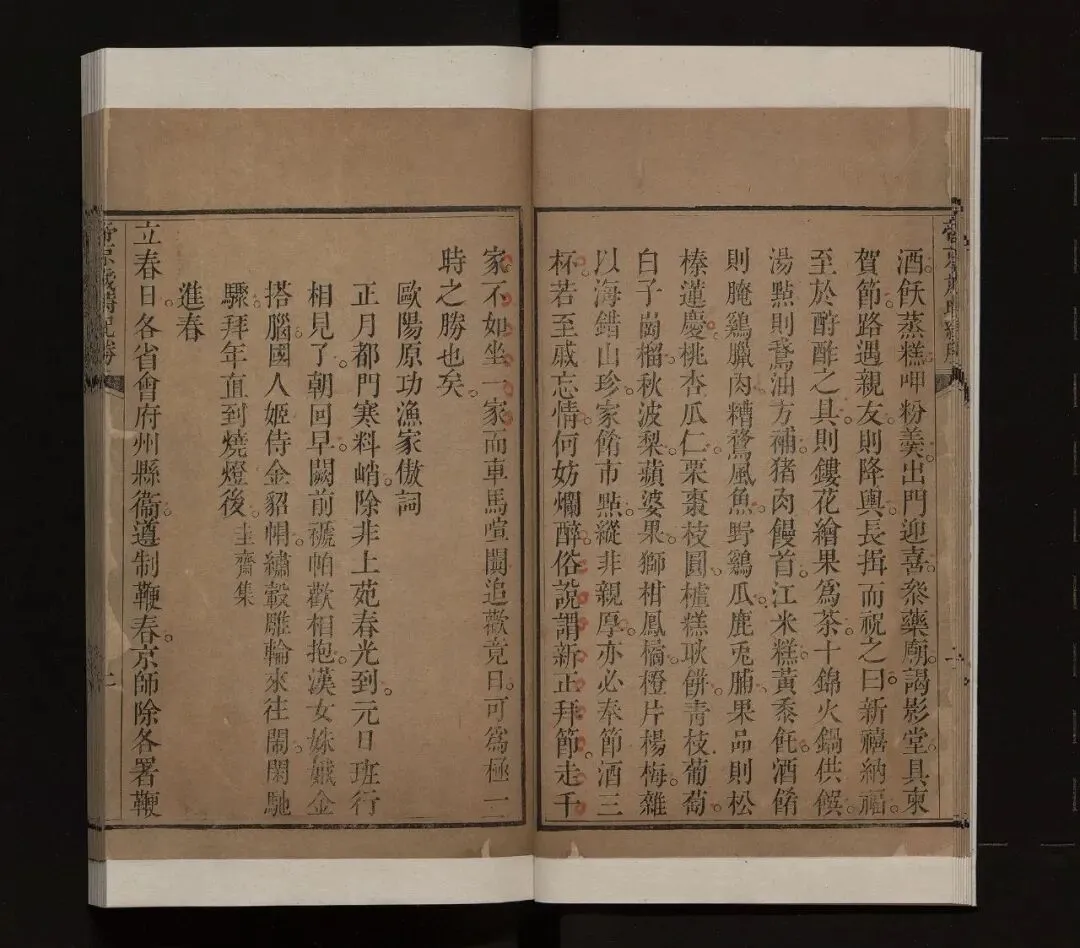 酒飫蒸糕呷粉羹。出門迎喜。叅藥廟。謁影堂。具柬
賀節。路遇親友。則降輿長揖。而祝之曰新禧納福。
至於酧酢之具。則鏤花繪果爲茶。十錦火鍋供饌。
湯點則鵞油方補。猪肉饅首。江米糕。黃黍飥。酒餚
則腌鷄臘肉。糟鶩風魚。野鷄瓜。鹿兎脯。果品則松
榛蓮慶。桃杏瓜仁。栗棗枝圓。樝糕耿餅。青枝葡萄。
白子崗榴。秋波梨。蘋婆果。獅柑鳳橘。橙片楊梅。雜
以海錯山珍。家餚市點。縱非親厚。亦必奉節酒三
杯。若至戚忘情。何妨爛醉。俗說謂新正拜節。走千
家不如坐一家。而車馬喧闐。追歡竟日。可爲極一
時之勝也矣。
歐陽原功漁家傲詞
正月都門寒料峭。除非上苑春光到。元日班行
相見了。朝回早。闕前褫帕歡相抱。漢女姝娥金
搭腦。國人姬侍金貂帽。繡轂雕輪來往鬧。閑馳
驟。拜年直到燒燈後。圭齋集
進春
立春日。各省會府州縣衞遵制鞭春。京師除各署鞭